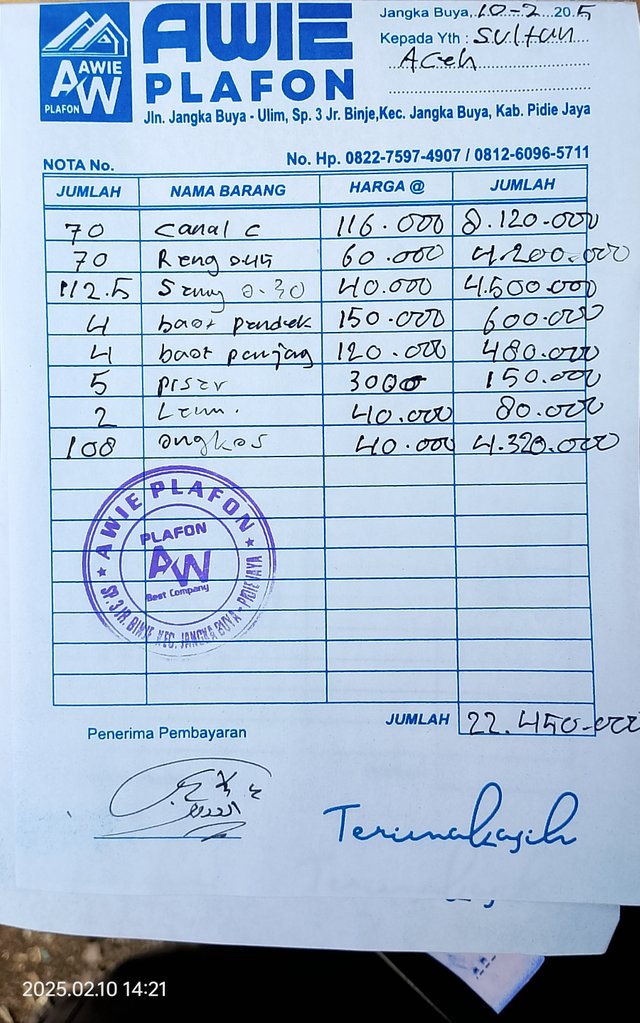 AWIE
PLAFON
AW
PLAFON
AWIE
PLAFON
Jangka Buya, 10-2 20.5
Kepada Yth : Sultan
Aceh
Jln. Jangka Buya - Ulim, Sp. 3 Jr. Binje,Kec. Jangka Buya, Kab. Pidie Jaya
NOTA No. No. Hp. 0822-7597-4907 / 0812-6096-5711
JUMLAH NAMA BARANG HARGA @ JUMLAH
70 Canal C 116.000 8.120.000
70 Reng 60.000 4.200.000
112.5 0.30 40.000 4.500.000
4 baot pendek 150.000 600.000
4 baot panjang 120.000 480.000
5 30.000 150.000
2 Lem. 40.000 80.000
108 ongkos 40.000 4.320.000
AWIE PLAFON
PLAFON
AW
Best Company
SP. 3 JR. BINJE KEC. JANGKA BUYA - PIDIE JAYA
JUMLAH 22.450.000
Penerima Pembayaran
Terimakasih
2025.02.10 14:21